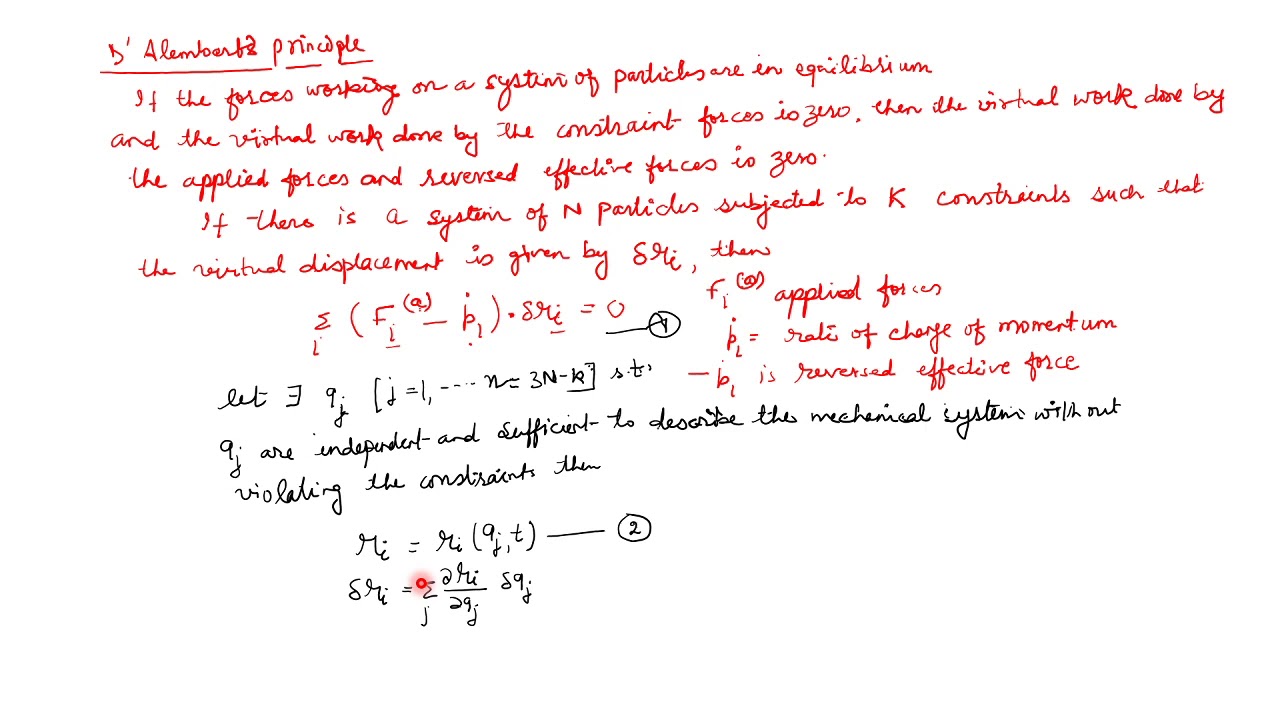 D' Alembert's principle
If the forces working on a system of particles are in equilibrium
and the virtual work done by the constraint forces is zero, then the virtual work done by
the applied forces and reversed effective forces is zero.
If there is a system of N particles subjected to K constraints such that
the virtual displacement is given by δr_i, then
Σ_i (F_i^(a) − ṗ_i)·δr_i = 0 —— ①
F_i^(a) applied forces
ṗ_i = rate of change of momentum
− ṗ_i is reversed effective force
let ∃ q_j [j=1, ---- n = 3N-k] s.t.
q_j are independent and sufficient to describe the mechanical system without
violating the constraints then
r_i = r_i (q_j, t) —— ②
δr_i = Σ_j ∂r_i/∂q_j δq_j